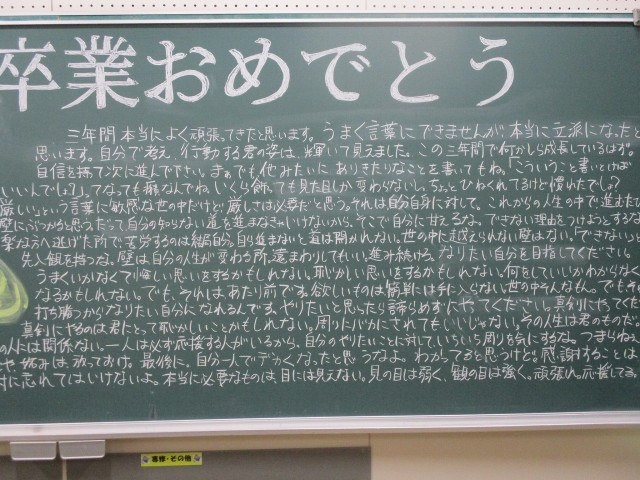 卒業おめでとう
三年間本当によく頑張ってきたと思います。うまく言葉にできませんが本当に立派になったと
思います。自分で考え、行動する君の姿は、輝いて見えました。この三年間で何かしら成長しているはず。
自信を持って次に進んで下さい。まぁでも他みたいにありきたりなことを書いてもね。「こういうこと書いとけば
いいんでしょ？」ってなっても癪なんでね。いくら飾っても見た目しか変わらないし。ちょっとひねくれてるけど慣れたでしょ？
厳しいという言葉に敏感な世の中だけど、厳しさは必要だと思う。それは自分自身に対して。これからの人生の中で進むたび
壁にぶつかると思う。だって、自分の知らない道を進まなきゃいけないから。そこで自分に甘えるな。できない理由をつけようとするな。
楽な方へ逃げた所で苦労するのは結局自分。自ら進まないと道は開かれない。世の中に越えられない壁はない。「できない」と
先入観を持つな。壁は自分の人生が変わる所。遠まわりしてもいい。進み続けろ。なりたい自分を目指してください。
うまくいかなくて悔しい思いをするかもしれない。恥かしい思いをするかもしれない。何をしていいかわからなく
なるかもしれない。でも、それはあたり前です。欲しいものは簡単には手に入らない世の中なんです。でもそこに
打ち勝つからなりたい自分になれるんです。やりたいと思ったら諦めずにやってください。真剣にやってくださ
真剣にやるのは君にとって恥かしいことかもしれない。周りにバカにされてもいいじゃない。その人生は君のものだ。
の人には関係ない。一人は必ず応援する人がいるから。自分のやりたいことに対していちいち周りを気にするな。つまらね
や妬みは、放っておけ。最後に。自分一人でデカくなったと思うなよ。わかってると思うけど。感謝することは
対に忘れてはいけないよ。本当に必要なものは、目には見えない。見の目は弱く、観の目は強く。頑張れ。応援してる。
書修・その他